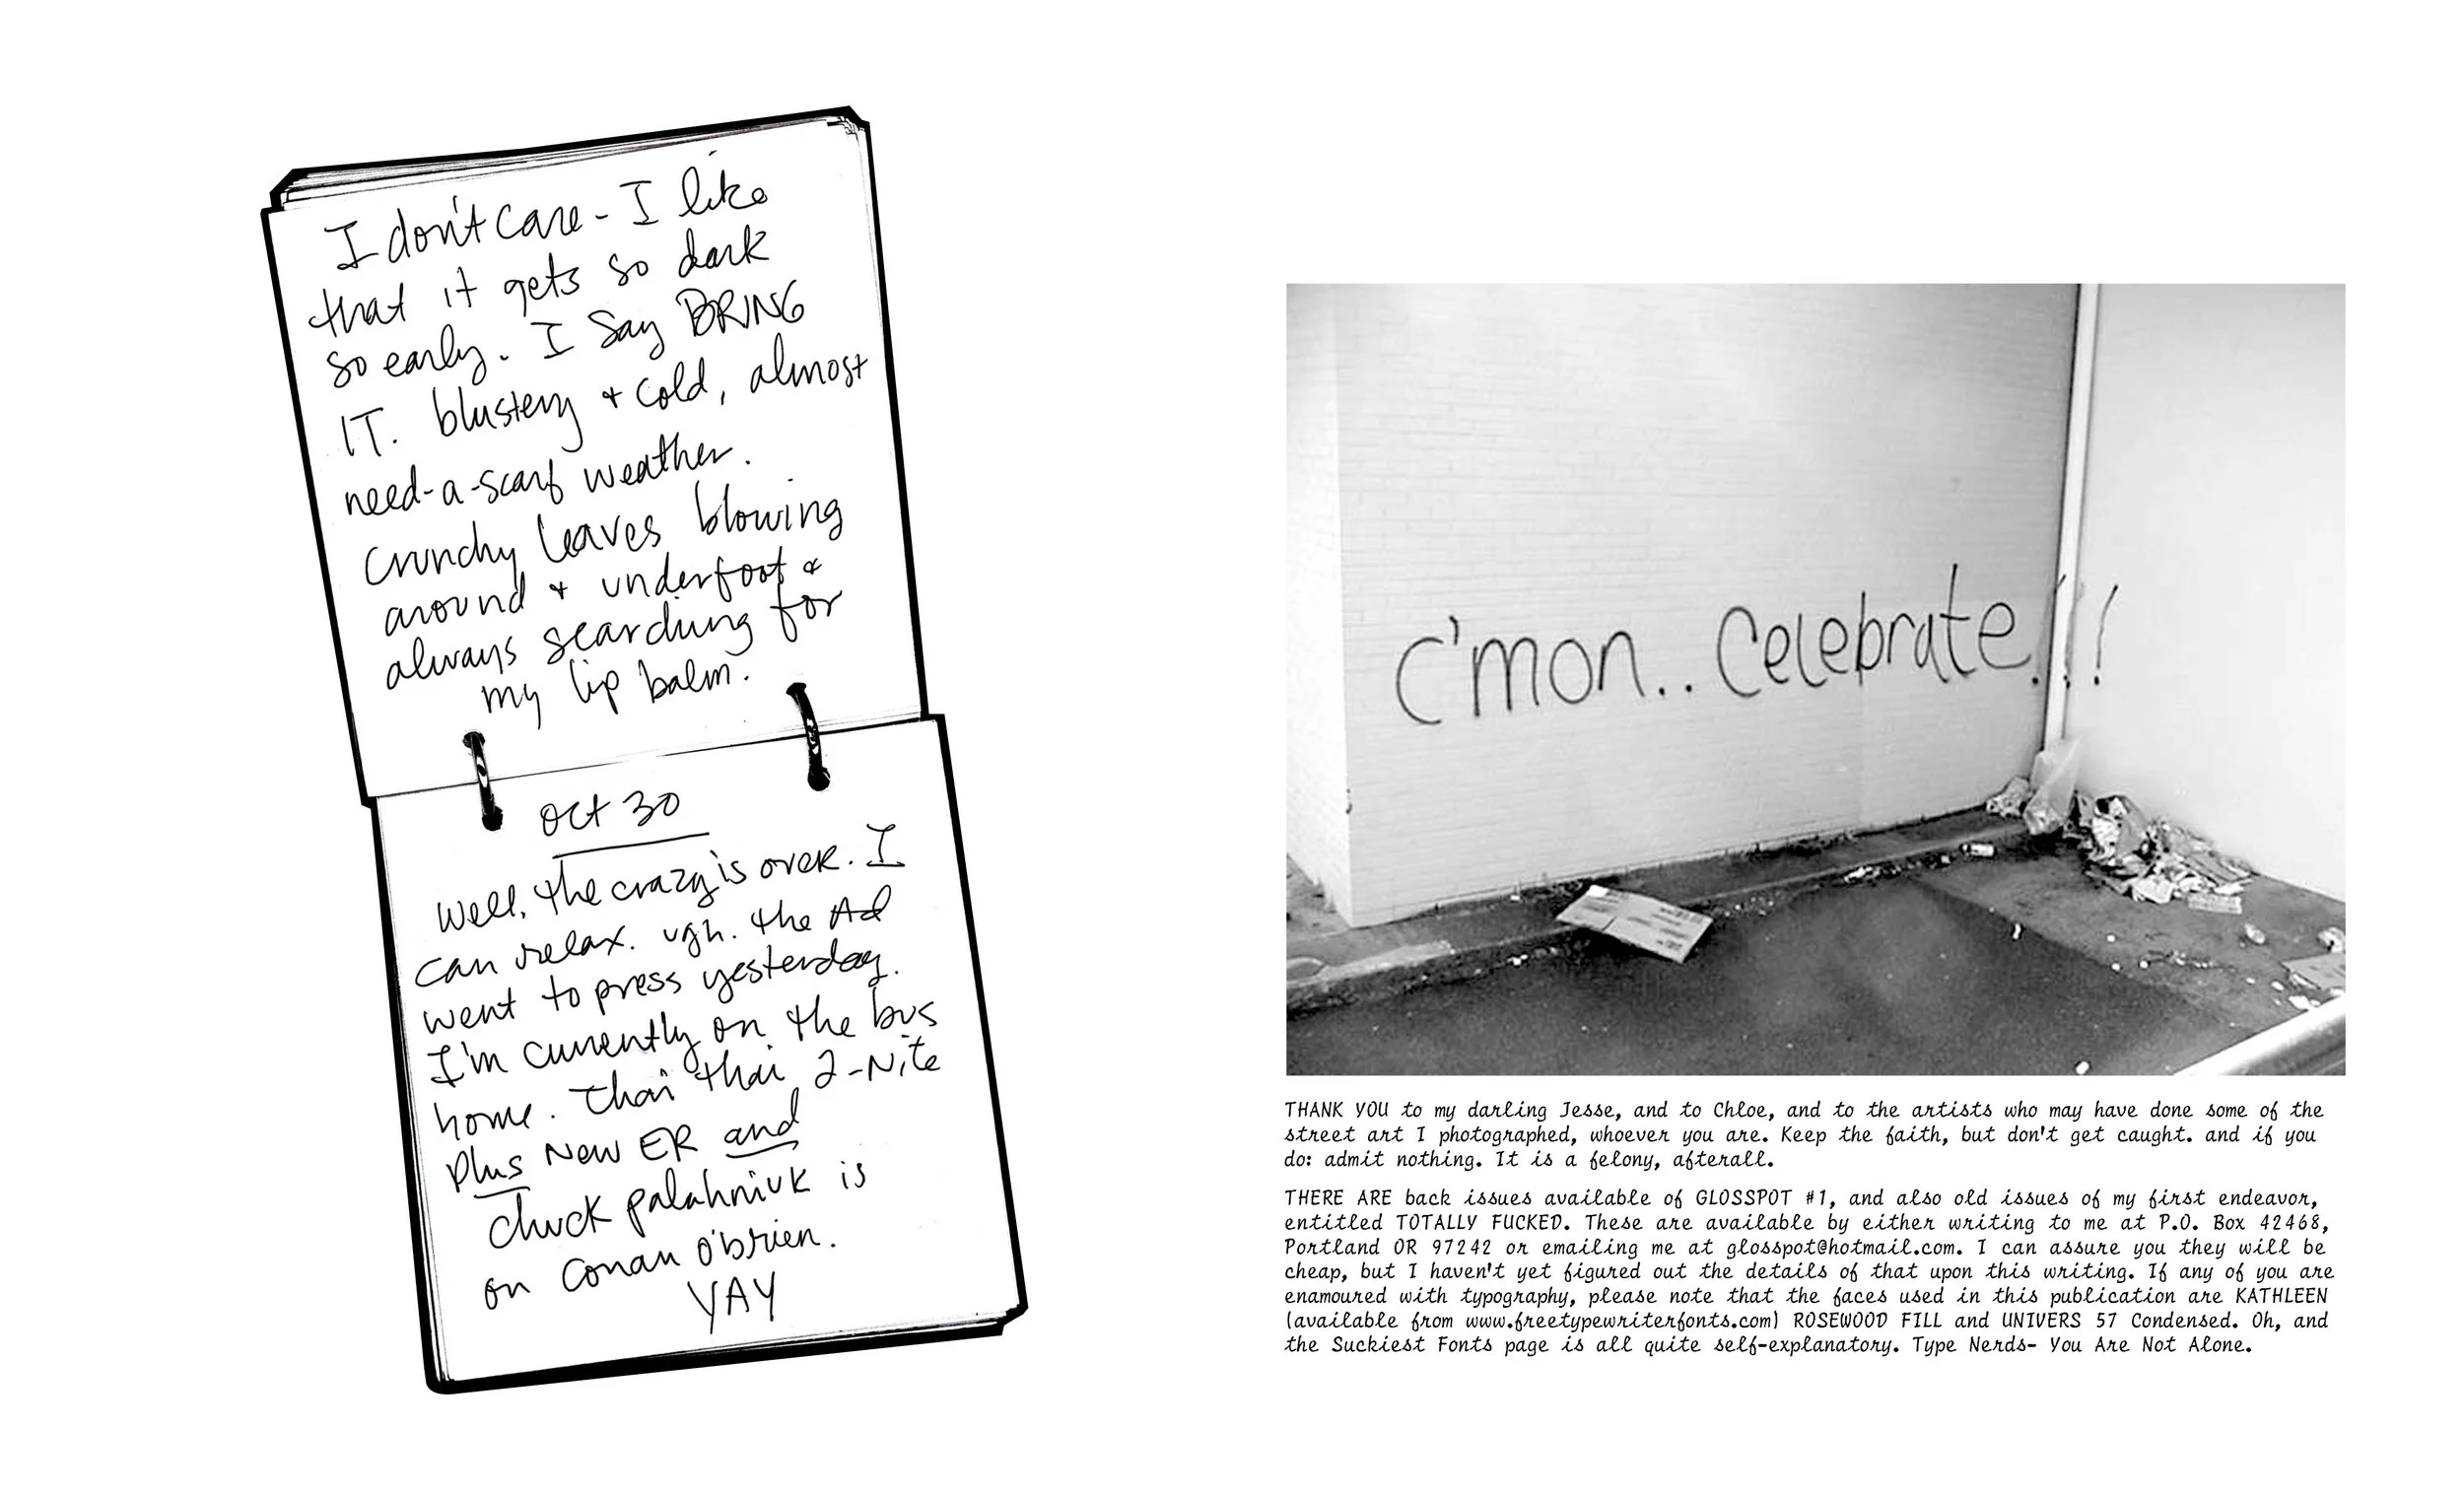 I don't care - I like
that it gets so dark
so early. I say BRING
IT. blustery + cold, almost
need-a-scarf weather.
crunchy leaves blowing
around + underfoot &
always searching for
my lip balm.
Oct 30
Well, the crazy is over. I
can relax. ugh. the Ad
went to press yesterday.
I'm currently on the bus
home. thai thai 2-Nite
plus New ER and
chuck palahniuk is
on Conan O'brien.
YAY
C'mon.. Celebrate!!!
THANK YOU to my darling Jesse, and to Chloe, and to the artists who may have done some of the
street art I photographed, whoever you are. Keep the faith, but don't get caught. and if you
do: admit nothing. It is a felony, afterall.
THERE ARE back issues available of GLOSSPOT #1, and also old issues of my first endeavor,
entitled TOTALLY FUCKED. These are available by either writing to me at P.O. Box 42468,
Portland OR 97242 or emailing me at glosspot@hotmail.com. I can assure you they will be
cheap, but I haven't yet figured out the details of that upon this writing. If any of you are
enamoured with typography, please note that the faces used in this publication are KATHLEEN
(available from www.freetypewriterfonts.com) ROSEWOOD FILL and UNIVERS 57 Condensed. Oh, and
the Suckiest Fonts page is all quite self-explanatory. Type Nerds- You Are Not Alone.